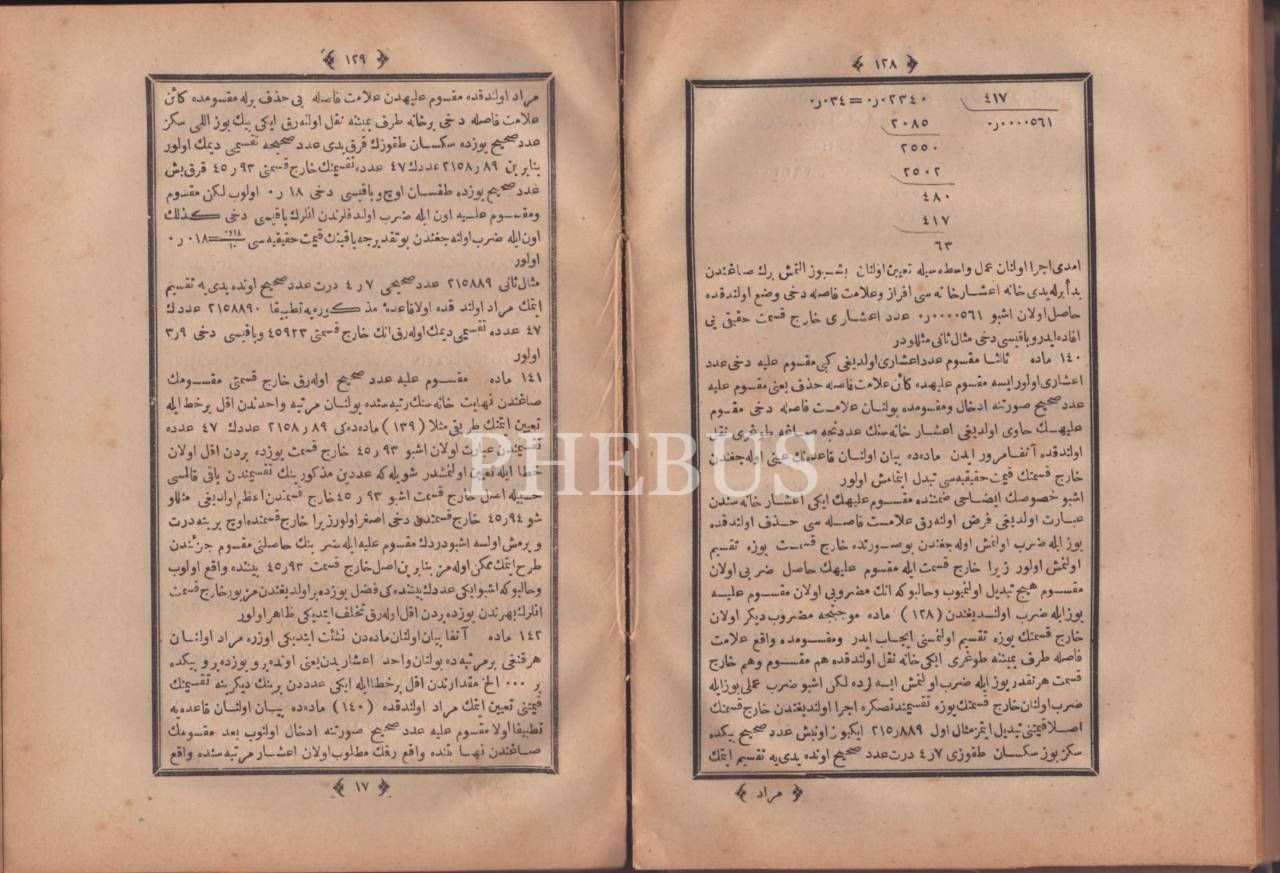 ﴿ ١٢٨ ﴾
٤١٧ ٠ر٠٢٣٤٠=٠ر٠٣٤
٠ر٠٠٠٠٥٦١ ٢٠٨٥
٢٥٥٠
٢٥٠٢
٤٨٠
٤١٧
٦٣
امدی اجرا اولنان عمل واسطه سیله تعیین اولنان بشیوز التمش برك صاغندن
بدأ ایله یدی خانه اعشار خانه سی افراز و علامت فاصله دخی وضع اولندقده
حاصل اولان اشبو ٠ر٠٠٠٠٥٦١ عدد اعشاری خارج قسمت حقیقی یی
افاده ایدر و باقیسی دخی مثال ثانی مثللودر
١٤٠ ماده ثالثا مقسوم عدد اعشاری اولدیغی کبی مقسوم علیه دخی عدد
اعشاری اولور ایسه مقسوم علیهده کائن علامت فاصله حذف یعنی مقسوم علیه
عدد صحیح صورتنه ادخال و مقسومده بولنان علامت فاصله دخی مقسوم
علیهك حاوی اولدیغی اعشار خانه سنك عددنجه صاغه طوغری نقل
اولندقده آنفا مرور ایدن ماده ده بیان اولنان قاعده نك عینی اوله جغندن
خارج قسمتك قیمت حقیقیه سی تبدل ایتمامش اولور
اشبو خصوصك ایضاحی ضمننده مقسوم علیهك ایکی اعشار خانه سندن
عبارت اولدیغی فرض اولنه رق علامت فاصله سی حذف اولندقده
یوز ایله ضرب اولنمش اوله جغندن بو صورتده خارج قسمت یوزه تقسیم
اولنمش اولور زیرا خارج قسمت ایله مقسوم علیهك حاصل ضربی اولان
مقسوم هیچ تبدیل اولنمیوب وحالبوکه انك مضروبی اولان مقسوم علیه
یوز ایله ضرب اولندیغندن (١٢٨) ماده موجبنجه مضروب دیکر اولان
خارج قسمتك یوزه تقسیم اولنمسنی ایجاب ایدر ومقسومده واقع علامت
فاصله طرف یمیننه طوغری ایکی خانه نقل اولندقده هم مقسوم وهم خارج
قسمت هر نقدر یوز ایله ضرب اولنمش ایسه لرده لکن اشبو ضرب عملی یوز ایله
ضرب اولنان خارج قسمتك یوزه تقسیمندنصکره اجرا اولندیغندن خارج قسمتك
اصلا قیمتنی تبدیل ایتمز مثال اول ٢١٥ر٨٨٩ ایکیوز اونبش عدد صحیح بیکده
سکز یوز سکسان طقوزی ٤ر٧ درت عدد صحیح اونده یدی یه تقسیم ایتمك
﴿ مراد ﴾
﴿ ١٢٩ ﴾
مراد اولندقده مقسوم علیهدن علامت فاصله یی حذف برله مقسومده کائن
علامت فاصله دخی بر خانه طرف یمیننه نقل اولنه رق ایکی بیك یوز اللی سکز
عدد صحیح یوزده سکسان طقوزك قرق یدی عدد صحیحه تقسیمی دیمك اولور
بنابرین ٢١٥٨ر٨٩ عددك ٤٧ عدده تقسیمنك خارج قسمتی ٤٥ر٩٣ قرق بش
عدد صحیح یوزده طقسان اوچ و باقیسی دخی ٠ر١٨ اولوب لکن مقسوم
ومقسوم علیه اون ایله ضرب اولندقلرندن انلرك باقیسی دخی کذلك
اون ایله ضرب اولنه جغندن بو تقدیرجه باقینك قیمت حقیقیه سی ٠ر١٨/١٠=٠ر٠١٨
اولور
مثال ثانی ٢١٥٨٨٩ عدد صحیحی ٤ر٧ درت عدد صحیح اونده یدی یه تقسیم
ایتمك مراد اولندقده اولا قاعدهٔ مذکوره یه تطبیقا ٢١٥٨٨٩٠ عددك
٤٧ عدده تقسیمی دیمك اوله رق انك خارج قسمتی ٤٥٩٢٣ و باقیسی دخی ٣ر٩
اولور
١٤١ ماده مقسوم علیه عدد صحیح اوله رق خارج قسمتی مقسومك
صاغندن نهایت خانه سنك رتبه سنده بولنان مرتبه واحدندن اقل بر خطا ایله
تعیین ایتمنك طریق مثلا (١٣٩) ماده ده کی ٢١٥٨ر٨٩ عددك ٤٧ عدده
تقسیمندن عبارت اولان اشبو ٤٥ر٩٣ خارج قسمت یوزده بردن اقل
خطا ایله تعیین اولنمشدر شویله که عددین مذکورینك تقسیمندن باقی قالمسی
حسبیله اصل خارج قسمت اشبو ٤٥ر٩٣ خارج قسمتدن اعظم اولدیغی مثللو
شو ٤٥ر٩٤ خارج قسمتدن دخی اصغر اولور زیرا خارج قسمتده اوچ یرینه درت
ویرمش اولسه اشبو دردك مقسوم علیه ایله ضربنك حاصلنی مقسوم جزئندن
طرح ایتمك ممکن اوله مز بنابرین اصل خارج قسمت ٤٥ر٩٣ بیننده واقع اولوب
وحالبوکه اشبو ایکی عددك بیننده کی فضل یوزده بر اولدیغندن مزبور خارج قسمت
انلرك بهرندن یوزده بردن اقل اوله رق تخلف ایتدیکی ظاهر اولور
١٤٢ ماده آنفا بیان اولنان ماده دن نشئت ایتدیکی اوزره مراد اولنان
هر قنغی بر مرتبه ده بولنان واحد اعشاریدن یعنی اونده بر و یوزده بر و بیکده
بر ٠٠٠ الخ مقدارندن اقل بر خطا ایله ایکی عددن برینك دیکرینه تقسیمنك
قیمتنی تعیین ایتمك مراد اولندقده (١٤٠) ماده ده بیان اولنان قاعده یه
تطبیقا اولا مقسوم علیه عدد صحیح صورتنه ادخال اولنوب بعد مقسومك
صاغندن نهایتنده واقع رقمك مطلوب اولان اعشار مرتبه سنده واقع
﴿ ١٧ ﴾
PHEBUS